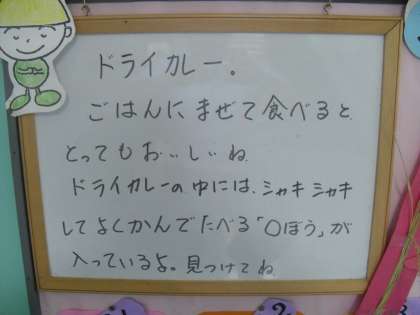 ドライカレー。
ごはんに まぜて 食べると
とっても おいしいね
ドライカレーの 中には、シャキ シャキ
して よく かんで たべる「〇ぼう」が
入っているよ。見つけてね